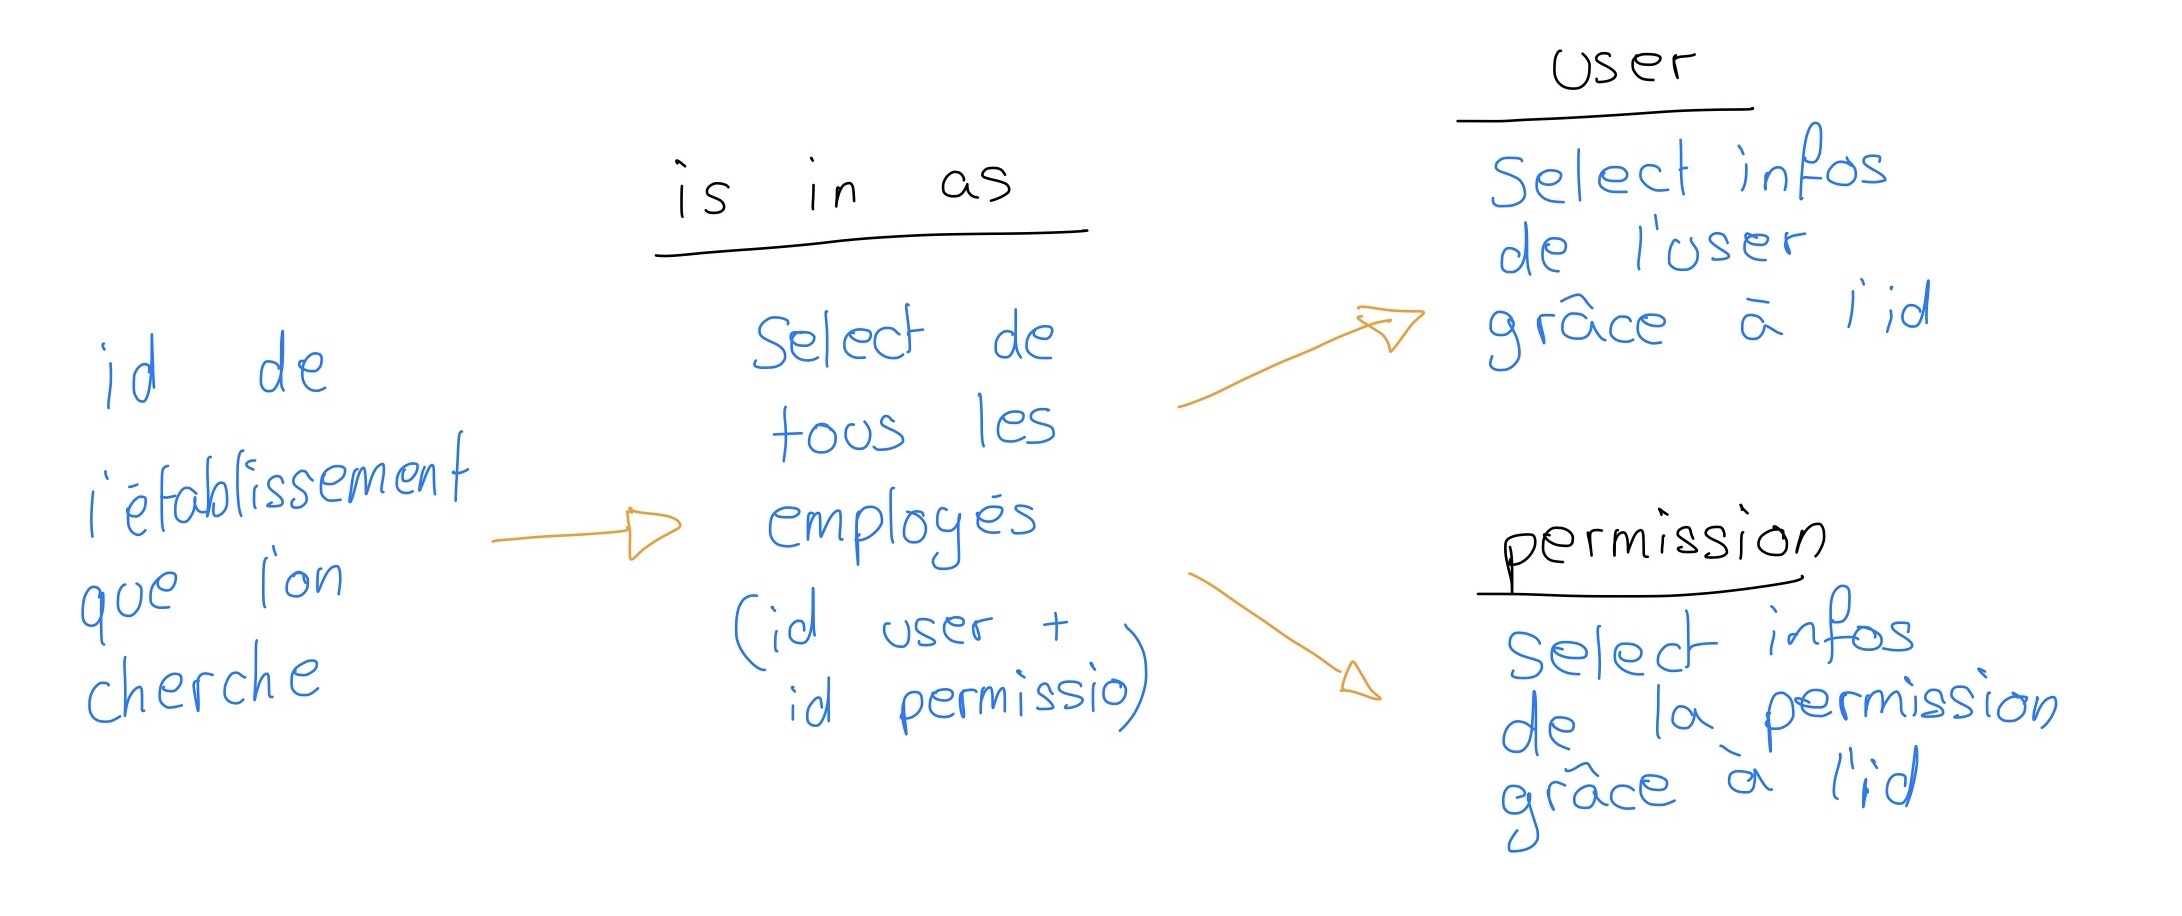 id de
l'établissement
que l'on
cherche
is in as
Select de
tous les
employés
(id user +
id permissio)
user
Select infos
de l'user
grâce à l'id
permission
Select infos
de la permission
grâce à l'id